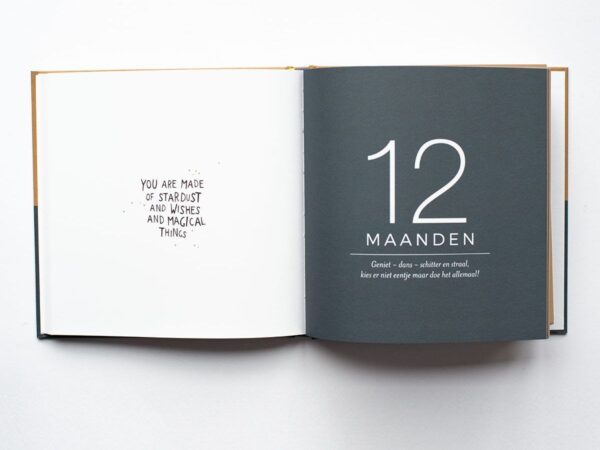 YOU ARE MADE
OF STARDUST
AND WISHES
AND MAGICAL
THINGS
12
MAANDEN
Geniet – dans – schitter en straal,
kies er niet eentje maar doe het allemaal!